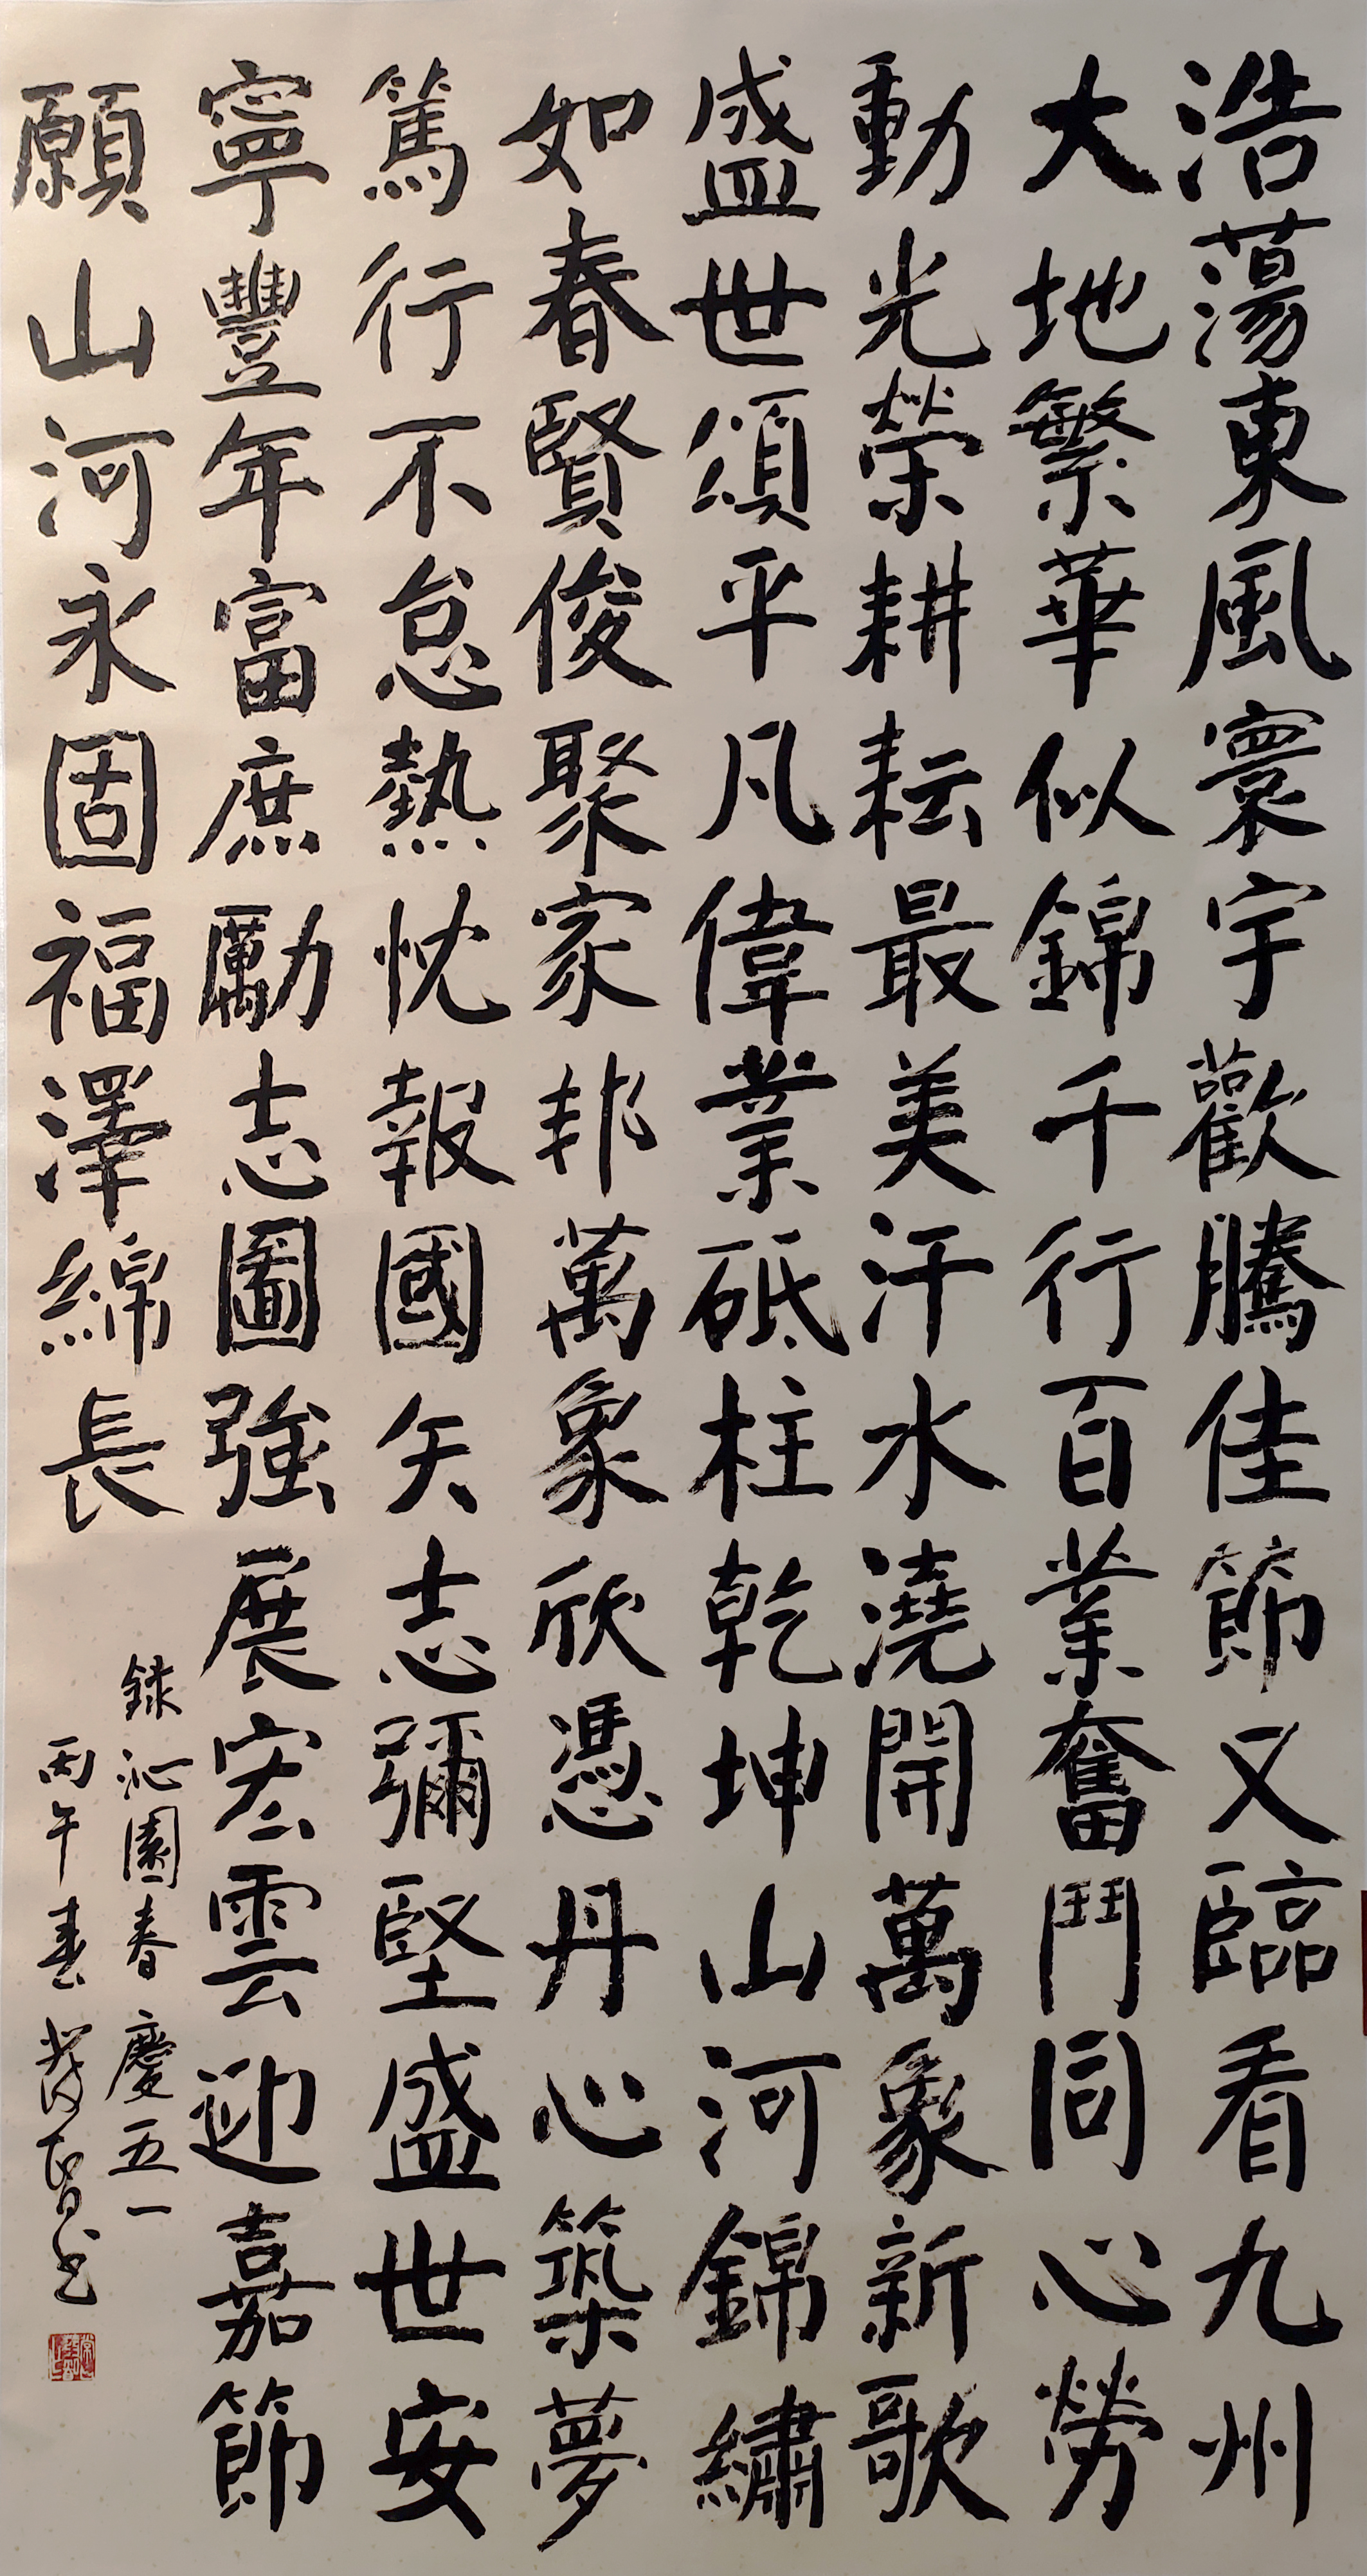 浩蕩東風寰宇歡騰佳節又臨看九州
大地繁華似錦千行百業奮鬥同心勞
動光榮耕耘最美汗水澆開萬象新歌
盛世頌平凡偉業砥柱乾坤山河錦繡
如春賢俊聚家邦萬象欣憑丹心築夢
篤行不怠熱忱報國矢志彌堅盛世安
寧豐年富庶勵志圖強展宏雲迎嘉節
願山河永固福澤綿長
錄沁園春慶五一
丙午春
書